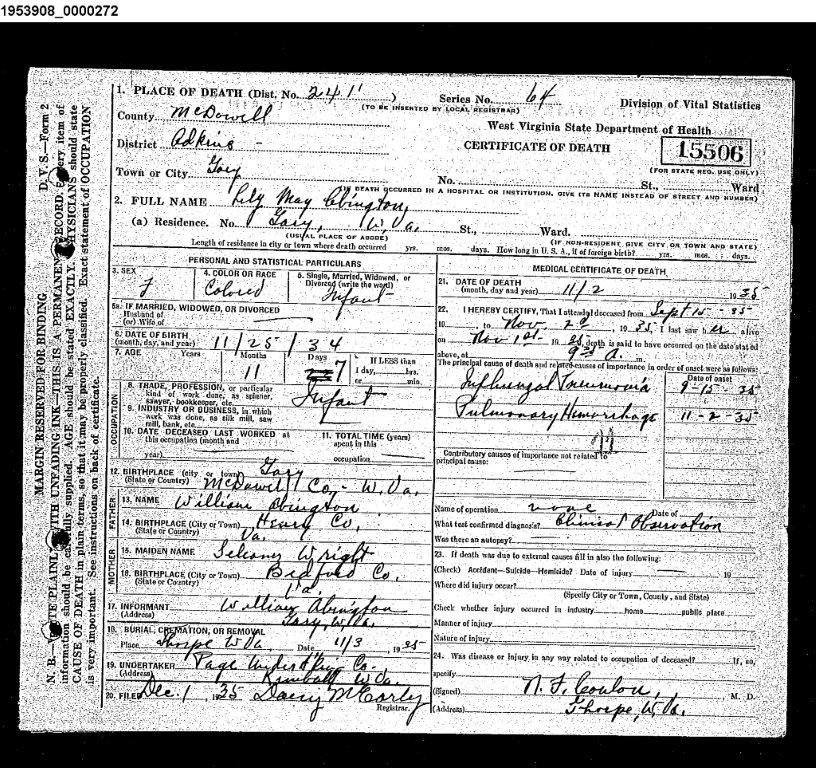 1953908_0000272
1. PLACE OF DEATH (Dist. No. 241) Series No. 64 Division of Vital Statistics
(TO BE INSERTED BY LOCAL REGISTRAR)
County McDowell West Virginia State Department of Health
District Adkins - CERTIFICATE OF DEATH 15506
(FOR STATE REG. USE ONLY)
Town or City Gary No. St., Ward
(IF DEATH OCCURRED IN A HOSPITAL OR INSTITUTION, GIVE ITS NAME INSTEAD OF STREET AND NUMBER)
2. FULL NAME Lily May Abington
(a) Residence. No. Gary, W. Va. St., Ward.
(USUAL PLACE OF ABODE) (IF NON-RESIDENT GIVE CITY OR TOWN AND STATE)
Length of residence in city or town where death occurred yrs. mos. days. How long in U. S. A., if of foreign birth? yrs. mos. days.
PERSONAL AND STATISTICAL PARTICULARS
3. SEX 4. COLOR OR RACE 5. Single, Married, Widowed, or
Divorced (write the word)
F Colored Infant
5a. IF MARRIED, WIDOWED, OR DIVORCED
Husband of
(or) Wife of
6. DATE OF BIRTH
(month, day, and year) 11/25/34
7. AGE Years Months Days If LESS than
1 day, hrs.
or min.
11 7
OCCUPATION
8. TRADE, PROFESSION, or particular
kind of work done, as spinner,
sawyer, bookkeeper, etc. Infant
9. INDUSTRY OR BUSINESS, in which
work was done, as silk mill, saw
mill, bank, etc.
10. DATE DECEASED LAST WORKED at
this occupation (month and
year)
11. TOTAL TIME (years)
spent in this
occupation
12. BIRTHPLACE (city or town) Gary
(State or Country) McDowell Co, - W. Va.
FATHER
13. NAME William Abington
14. BIRTHPLACE (City or Town) Henry Co,
(State or Country) Va.
MOTHER
15. MAIDEN NAME Wright
16. BIRTHPLACE (City or Town) Bedford Co.
(State or Country) Va.
17. INFORMANT William Abington
(Address) Gary, W.Va.
18. BURIAL, CREMATION, OR REMOVAL
Place Thorpe W Va Date 11/3, 1935
19. UNDERTAKER Page Undertking Co.
(Address) Kimball W Va.
20. FILED Dec. 1, 1935 McCarty
Registrar.
MEDICAL CERTIFICATE OF DEATH
21. DATE OF DEATH
(month, day and year) 11/2 1935
22. I HEREBY CERTIFY, That I attended deceased from Sept 15 - 35
19 , to Nov 2d, 1935. I last saw her alive
on Nov 1st 1935 death is said to have occurred on the date stated
above, at 9 A. m.
The principal cause of death and related causes of importance in order of onset were as follows:
Date of onset
Influenzal Pneumonia 9-15-35
Pulmonary Hemorrhage 11-2-35
11
Contributory causes of importance not related to
principal cause:
Name of operation none Date of
What test confirmed diagnosis? Clinical Observation
Was there an autopsy?
23. If death was due to external causes fill in also the following:
(Check) Accident—Suicide—Homicide? Date of injury 19
Where did injury occur?
(Specify City or Town, County, and State)
Check whether injury occurred in industry home public place
Manner of injury
Nature of injury
24. Was disease or injury in any way related to occupation of deceased? If, so,
specify
(Signed) N. F. Coulon, M. D.
(Address) Thorpe, W. Va.
D. V. S.—Form 2
MARGIN RESERVED FOR BINDING
N. B.—WRITE PLAINLY WITH UNFADING INK—THIS IS A PERMANENT RECORD. Every item of
information should be carefully supplied. AGE should be stated EXACTLY. PHYSICIANS should state
CAUSE OF DEATH in plain terms, so that it may be properly classified. Exact statement of OCCUPATION
is very important. See instructions on back of certificate.